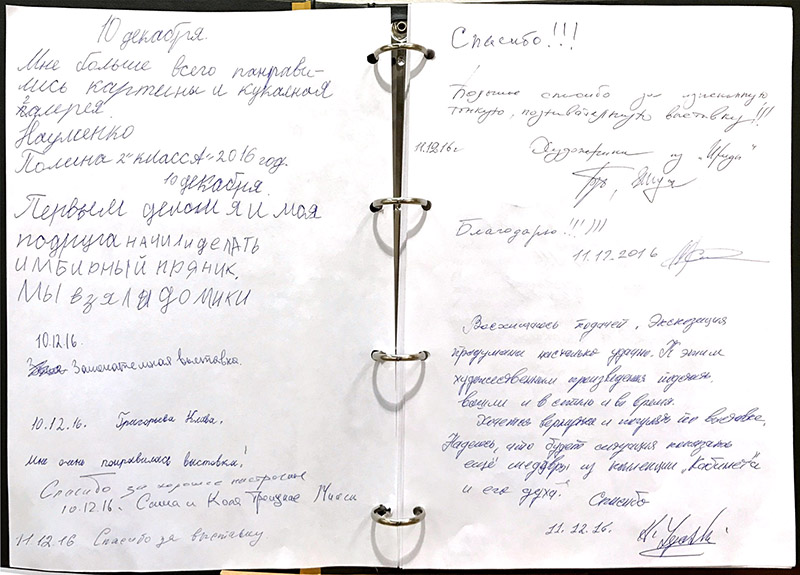 10 декабря.
Мне больше всего панрави-
лись картины и кукальная
галерея
Науменко
Полина 2"класса" 2016 год.
10 декабря.
Первым делом я и моя
подруга начили делать
имбирный пряник.
Мы взяли домики
10.12.16.
Замечательная выставка.
10.12.16. Григорьева
Мне очень понравилась выставка!
Спасибо за хорошее настроение
10.12.16. Саша и Коля Троицкие
11.12.16 Спасибо за выставку
Спасибо!!!
Большое спасибо за
тонкую, познавательную выставку!!!
11.12.16г Художники из "Ириды"
Благодарю!!!)))
11.12.2016
Восхищаюсь подачей. Экспозиция
продумана насколько удачно. К этим
художественным произведения
и в стиль и во время.
Хочется вернуться и погулять по выставке.
Надеюсь, что будет ситуация показать
ещё шедевры из коллекции "Кабинета"
и его духа!
Спасибо
11.12.16.